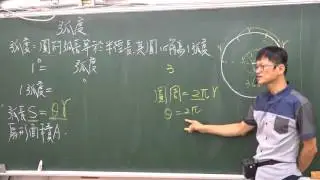 弧度
弧度=圓的弧長等於半徑長,其圓心角為1弧度
1°= 弧度
3
1弧度=
弧長S=θr
扇形面積A
圓周=2πr
θ=2π
r